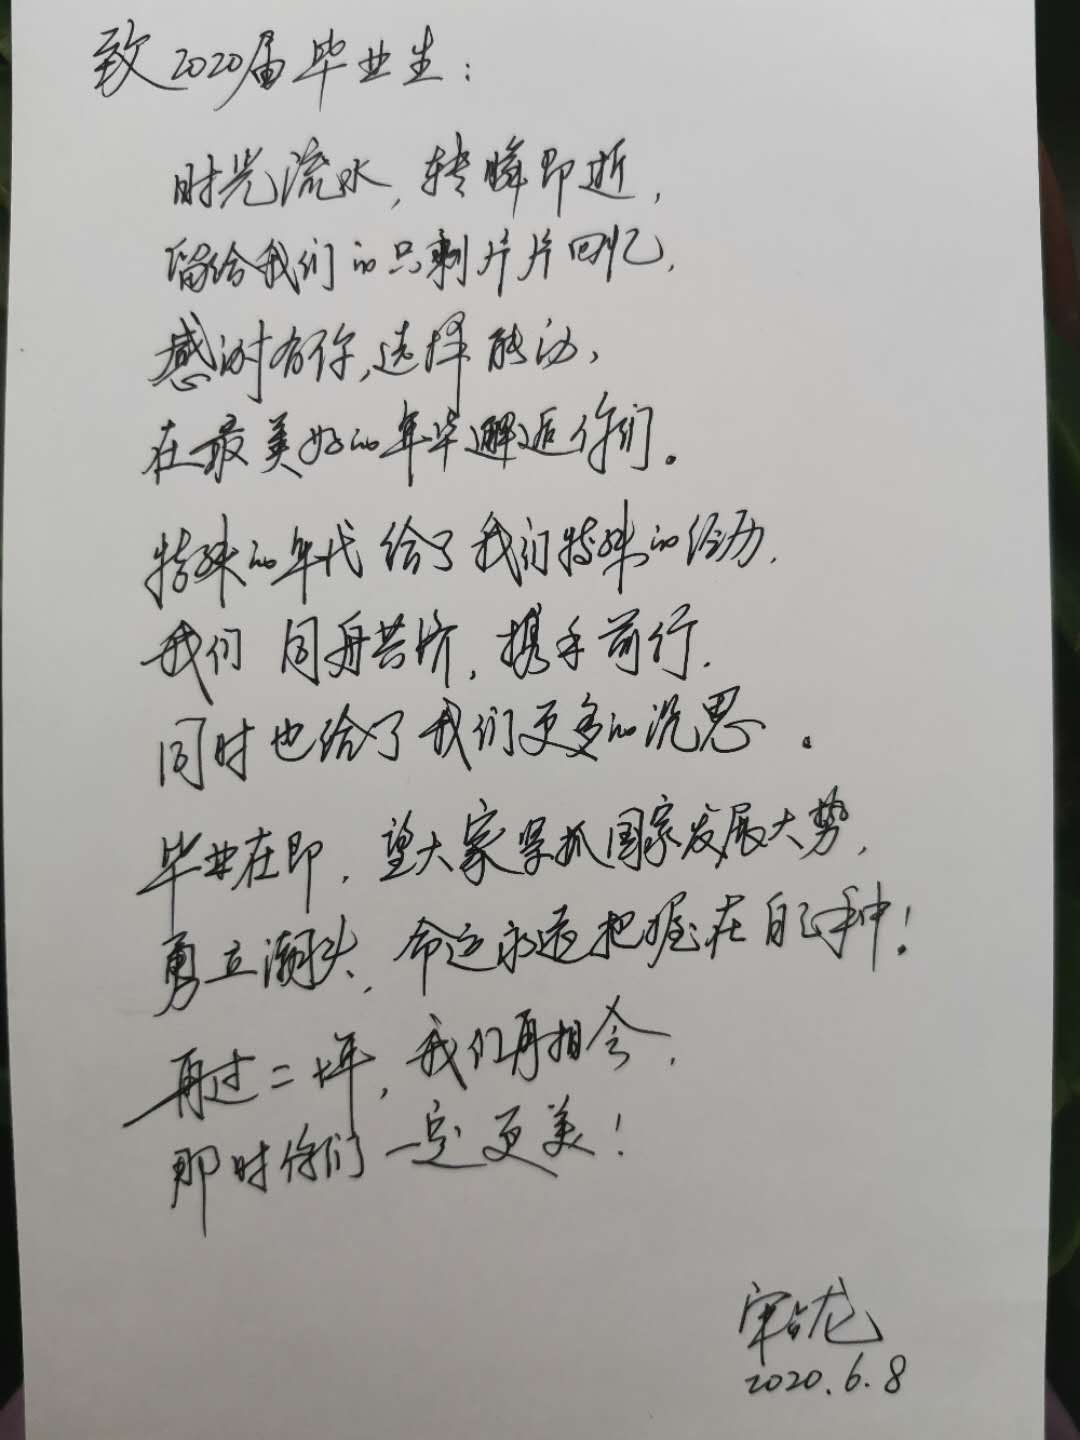 致2020届毕业生：
时光流水，转瞬即逝，
留给我们的只剩片片回忆，
感谢有你，选择能动，
在最美好的年华邂逅你们。
特殊的年代给了我们特殊的经历，
我们同舟共济，携手前行，
同时也给了我们更多的沉思。
毕业在即，望大家紧抓国家发展大势，
勇立潮头，命运永远把握在自己手中！
再过二十年，我们再相会，
那时你们一定更美！
龙
2020.6.8